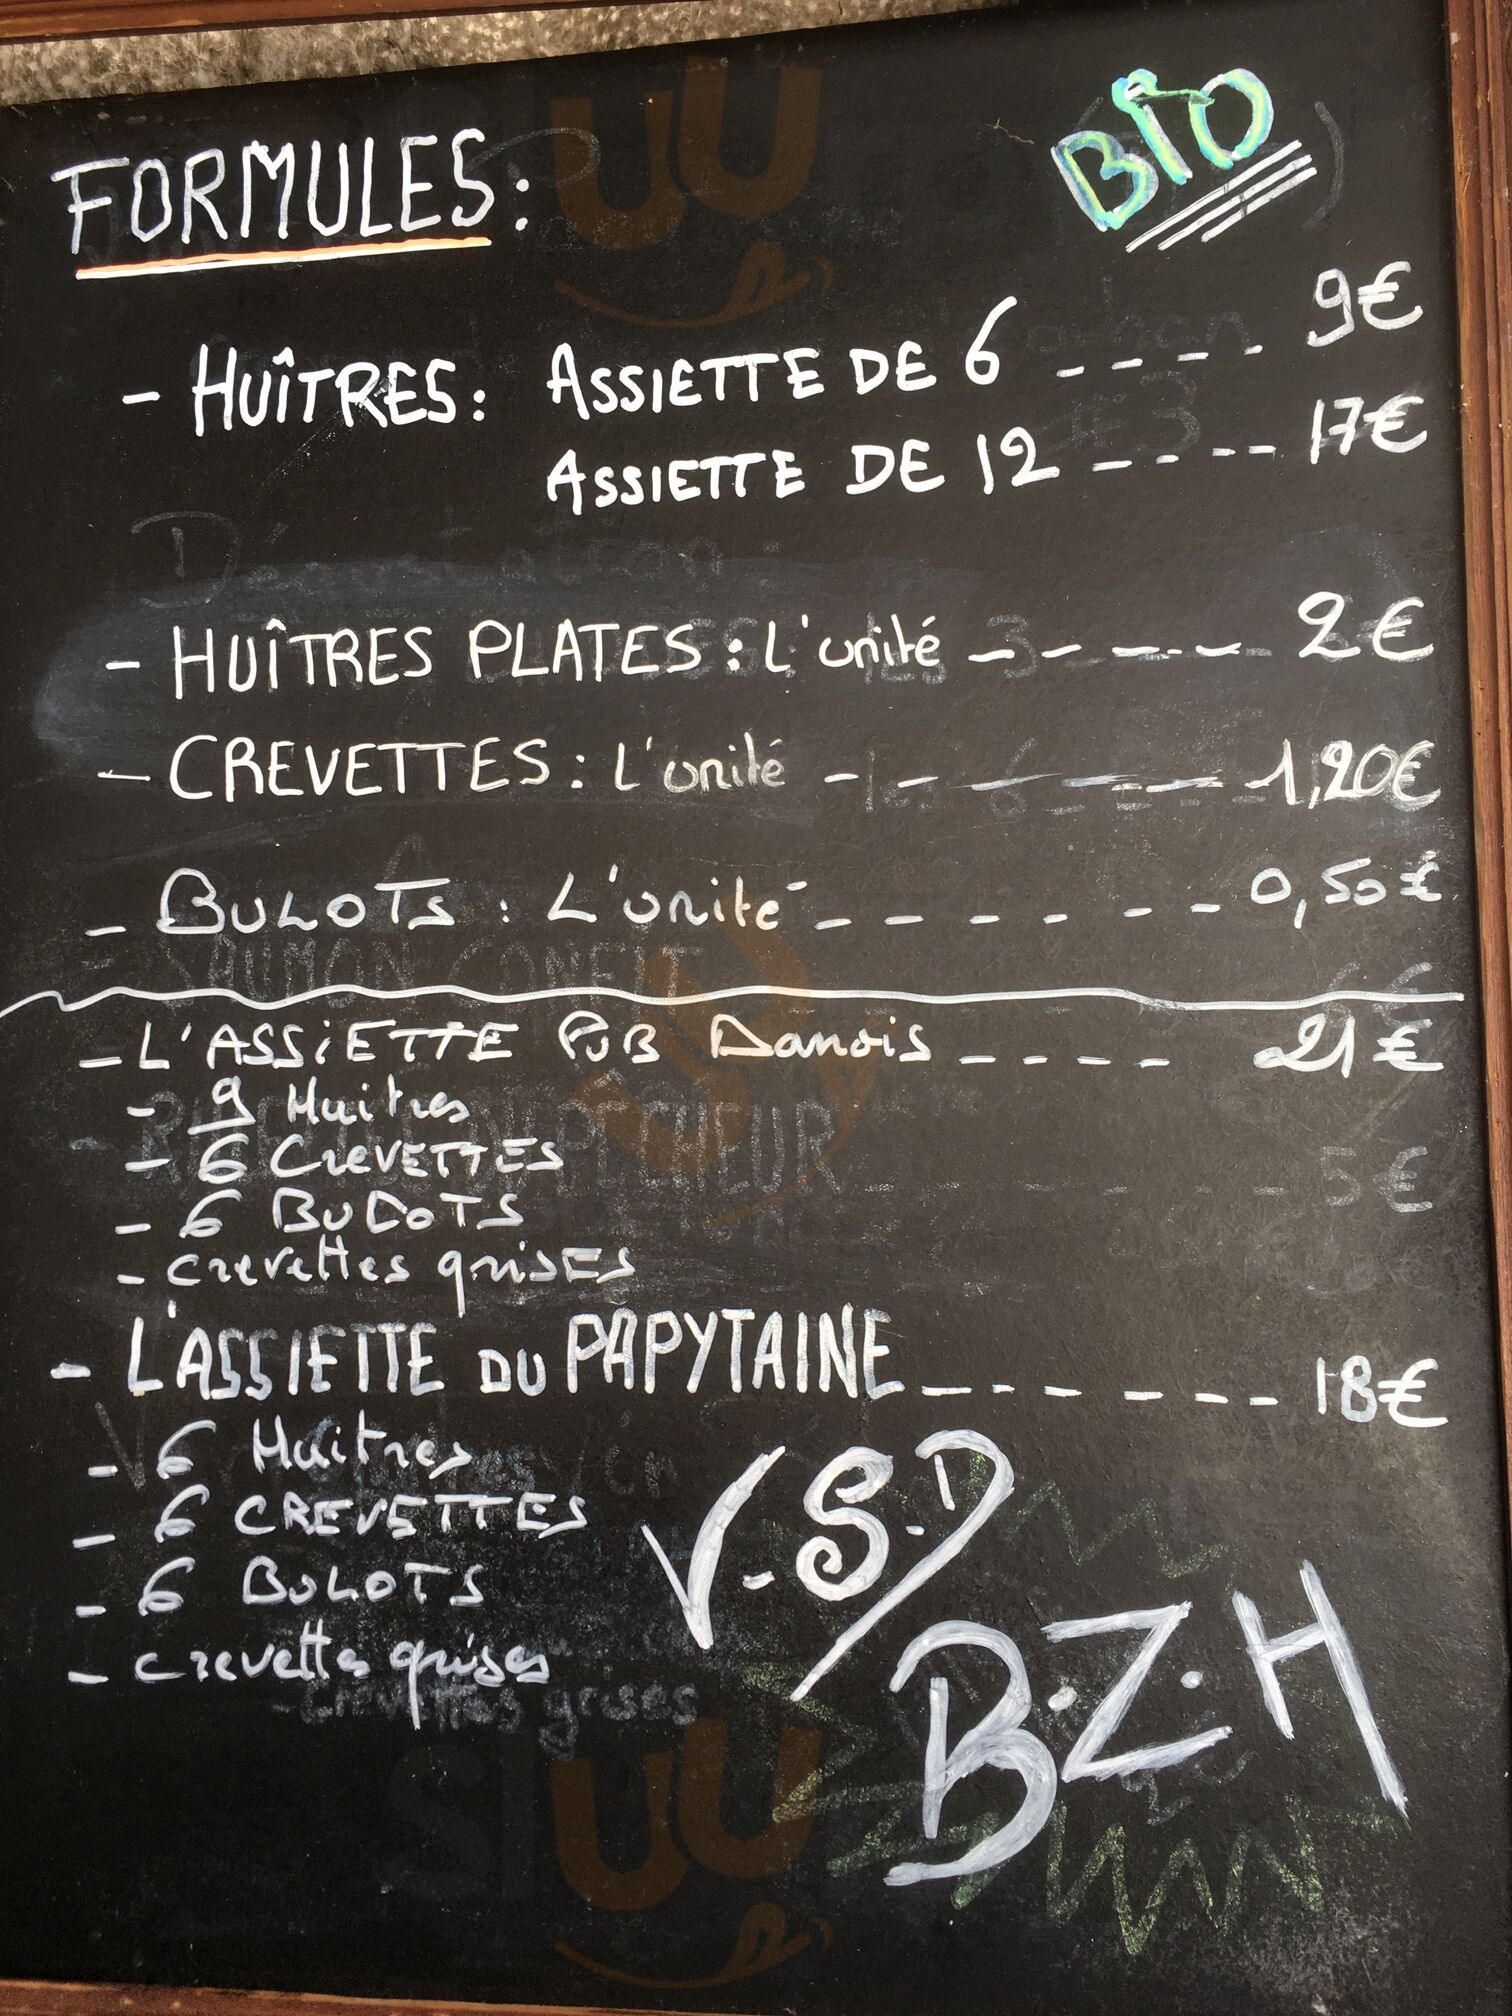 BIO
FORMULES:
- HUÎTRES: ASSIETTE DE 6 ---- 9€
ASSIETTE DE 12 ----- 17€
- HUÎTRES PLATES: L'unité ------ 2€
- CREVETTES: L'unité ------ 1,20€
- BULOTS: L'unité ------- 0,50€
SAUMON CONFIT
- L'ASSIETTE PUB Danois ---- 21€
- 9 Huitres
- 6 CREVETTES
- 6 BULOTS
- crevettes grises
5€
- L'ASSIETTE DU PAPYTAINE ------- 18€
- 6 Huitres
- 6 CREVETTES
- 6 BULOTS
- crevettes grises
- crevettes grises
V-S.D/
B.Z.H